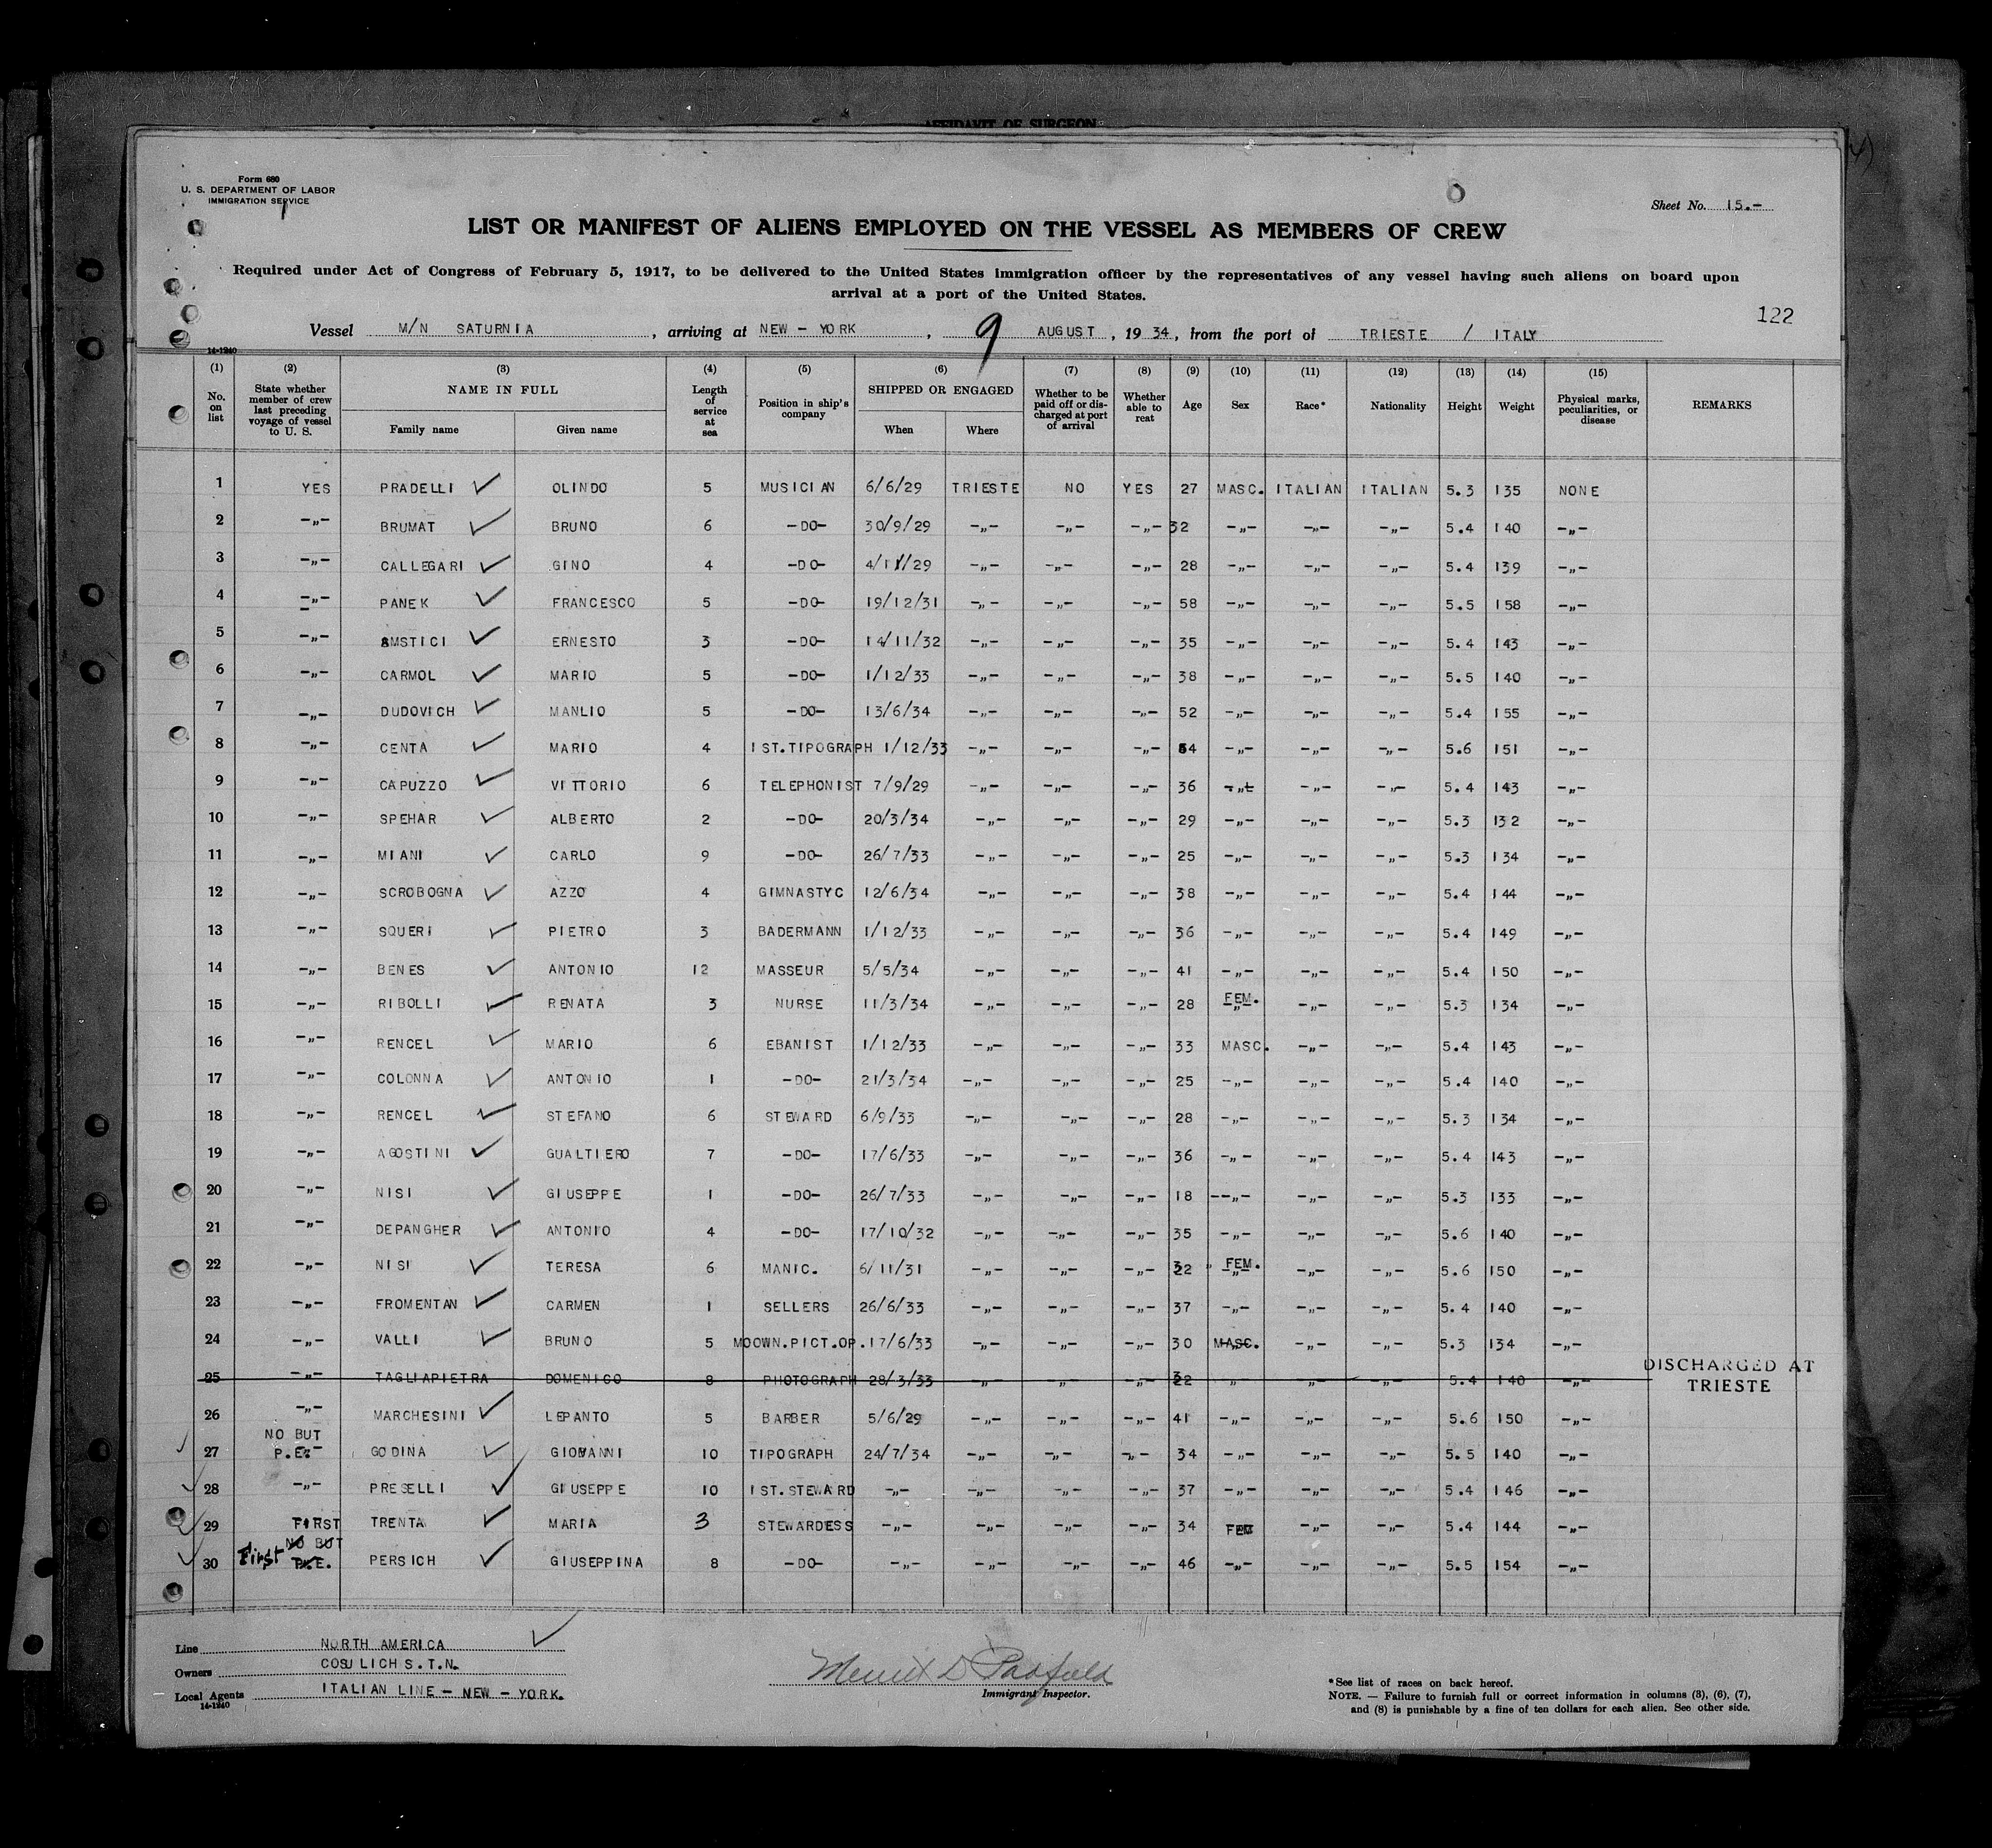 AFFIDAVIT OF SURGEON
Form 680
U. S. DEPARTMENT OF LABOR
IMMIGRATION SERVICE
Sheet No. 15.-
LIST OR MANIFEST OF ALIENS EMPLOYED ON THE VESSEL AS MEMBERS OF CREW
Required under Act of Congress of February 5, 1917, to be delivered to the United States immigration officer by the representatives of any vessel having such aliens on board upon
arrival at a port of the United States.
122
Vessel M/N SATURNIA, arriving at NEW - YORK, 9 AUGUST, 1934, from the port of TRIESTE / ITALY
14-1240
(1) (2) (3) (4) (5) (6) (7) (8) (9) (10) (11) (12) (13) (14) (15)
No. on list State whether member of crew last preceding voyage of vessel to U. S. NAME IN FULL Family name Given name Length of service at sea Position in ship's company SHIPPED OR ENGAGED When Where Whether to be paid off or discharged at port of arrival Whether able to reat Age Sex Race* Nationality Height Weight Physical marks, peculiarities, or disease REMARKS
1 YES PRADELLI OLINDO 5 MUSICIAN 6/6/29 TRIESTE NO YES 27 MASC. ITALIAN ITALIAN 5.3 135 NONE
2 -„- BRUMAT BRUNO 6 -DO- 30/9/29 -„- -„- -„- 32 -„- -„- -„- 5.4 140 -„-
3 -„- CALLEGARI GINO 4 -DO- 4/11/29 -„- -„- -„- 28 -„- -„- -„- 5.4 139 -„-
4 -„- PANEK FRANCESCO 5 -DO- 19/12/31 -„- -„- -„- 58 -„- -„- -„- 5.5 158 -„-
5 -„- AMSTICI ERNESTO 3 -DO- 14/11/32 -„- -„- -„- 35 -„- -„- -„- 5.4 143 -„-
6 -„- CARMOL MARIO 5 -DO- 1/12/33 -„- -„- -„- 38 -„- -„- -„- 5.5 140 -„-
7 -„- DUDOVICH MANLIO 5 -DO- 13/6/34 -„- -„- -„- 52 -„- -„- -„- 5.4 155 -„-
8 -„- CENTA MARIO 4 1ST.TIPOGRAPH 1/12/33 -„- -„- -„- 54 -„- -„- -„- 5.6 151 -„-
9 -„- CAPUZZO VITTORIO 6 TELEPHONIST 7/9/29 -„- -„- -„- 36 -„- -„- -„- 5.4 143 -„-
10 -„- SPEHAR ALBERTO 2 -DO- 20/3/34 -„- -„- -„- 29 -„- -„- -„- 5.3 132 -„-
11 -„- MIANI CARLO 9 -DO- 26/7/33 -„- -„- -„- 25 -„- -„- -„- 5.3 134 -„-
12 -„- SCROBOGNA AZZO 4 GIMNASTYC 12/6/34 -„- -„- -„- 38 -„- -„- -„- 5.4 144 -„-
13 -„- SQUERI PIETRO 3 BADERMANN 1/12/33 -„- -„- -„- 36 -„- -„- -„- 5.4 149 -„-
14 -„- BENES ANTONIO 12 MASSEUR 5/5/34 -„- -„- -„- 41 -„- -„- -„- 5.4 150 -„-
15 -„- RIBOLLI RENATA 3 NURSE 11/3/34 -„- -„- -„- 28 FEM. -„- -„- 5.3 134 -„-
16 -„- RENCEL MARIO 6 EBANIST 1/12/33 -„- -„- -„- 33 MASC. -„- -„- 5.4 143 -„-
17 -„- COLONNA ANTONIO 1 -DO- 21/3/34 -„- -„- -„- 25 -„- -„- -„- 5.4 140 -„-
18 -„- RENCEL STEFANO 6 STEWARD 6/9/33 -„- -„- -„- 28 -„- -„- -„- 5.3 134 -„-
19 -„- AGOSTINI GUALTIERO 7 -DO- 17/6/33 -„- -„- -„- 36 -„- -„- -„- 5.4 143 -„-
20 -„- NISI GIUSEPPE 1 -DO- 26/7/33 -„- -„- -„- 18 -„- -„- -„- 5.3 133 -„-
21 -„- DEPANGHER ANTONIO 4 -DO- 17/10/32 -„- -„- -„- 35 -„- -„- -„- 5.6 140 -„-
22 -„- NISI TERESA 6 MANIC. 6/11/31 -„- -„- -„- 32 FEM. -„- -„- 5.6 150 -„-
23 -„- FROMENTAN CARMEN 1 SELLERS 26/6/33 -„- -„- -„- 37 -„- -„- -„- 5.4 140 -„-
24 -„- VALLI BRUNO 5 MOOWN.PICT.OP. 17/6/33 -„- -„- -„- 30 MASC. -„- -„- 5.3 134 -„-
25 -„- TAGLIAPIETRA DOMENICO 8 PHOTOGRAPH 28/3/33 -„- -„- -„- 32 -„- -„- -„- 5.4 140 -„- DISCHARGED AT TRIESTE
26 -„- MARCHESINI LEPANTO 5 BARBER 5/6/29 -„- -„- -„- 41 -„- -„- -„- 5.6 150 -„-
27 NO BUT P.E. GODINA GIOVANNI 10 TIPOGRAPH 24/7/34 -„- -„- -„- 34 -„- -„- -„- 5.5 140 -„-
28 -„- PRESELLI GIUSEPPE 10 1ST.STEWARD -„- -„- -„- -„- 37 -„- -„- -„- 5.4 146 -„-
29 FIRST TRENTA MARIA 3 STEWARDESS -„- -„- -„- -„- 34 FEM -„- -„- 5.4 144 -„-
30 First NO BUT P.E. PERSICH GIUSEPPINA 8 -DO- -„- -„- -„- -„- 46 -„- -„- -„- 5.5 154 -„-
Line NORTH AMERICA
Owners COSULICH S.T.N.
Local Agents ITALIAN LINE - NEW - YORK.
14-1240
Merrit D Padfield
Immigrant Inspector.
*See list of races on back hereof.
NOTE. — Failure to furnish full or correct information in columns (3), (6), (7),
and (8) is punishable by a fine of ten dollars for each alien. See other side.